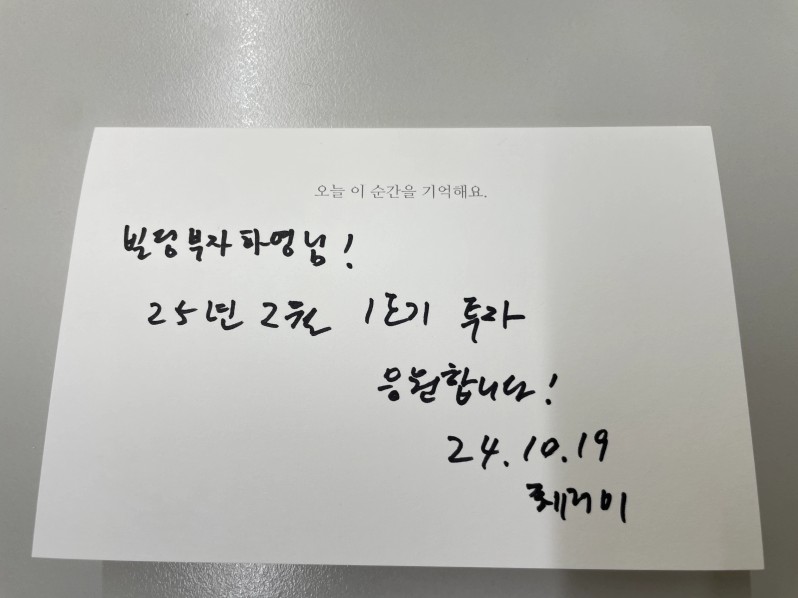 오늘 이 순간을 기억해요.
빌딩부자파영님!
25년 2월 1호기 투자
응원합니다!
24.10.19